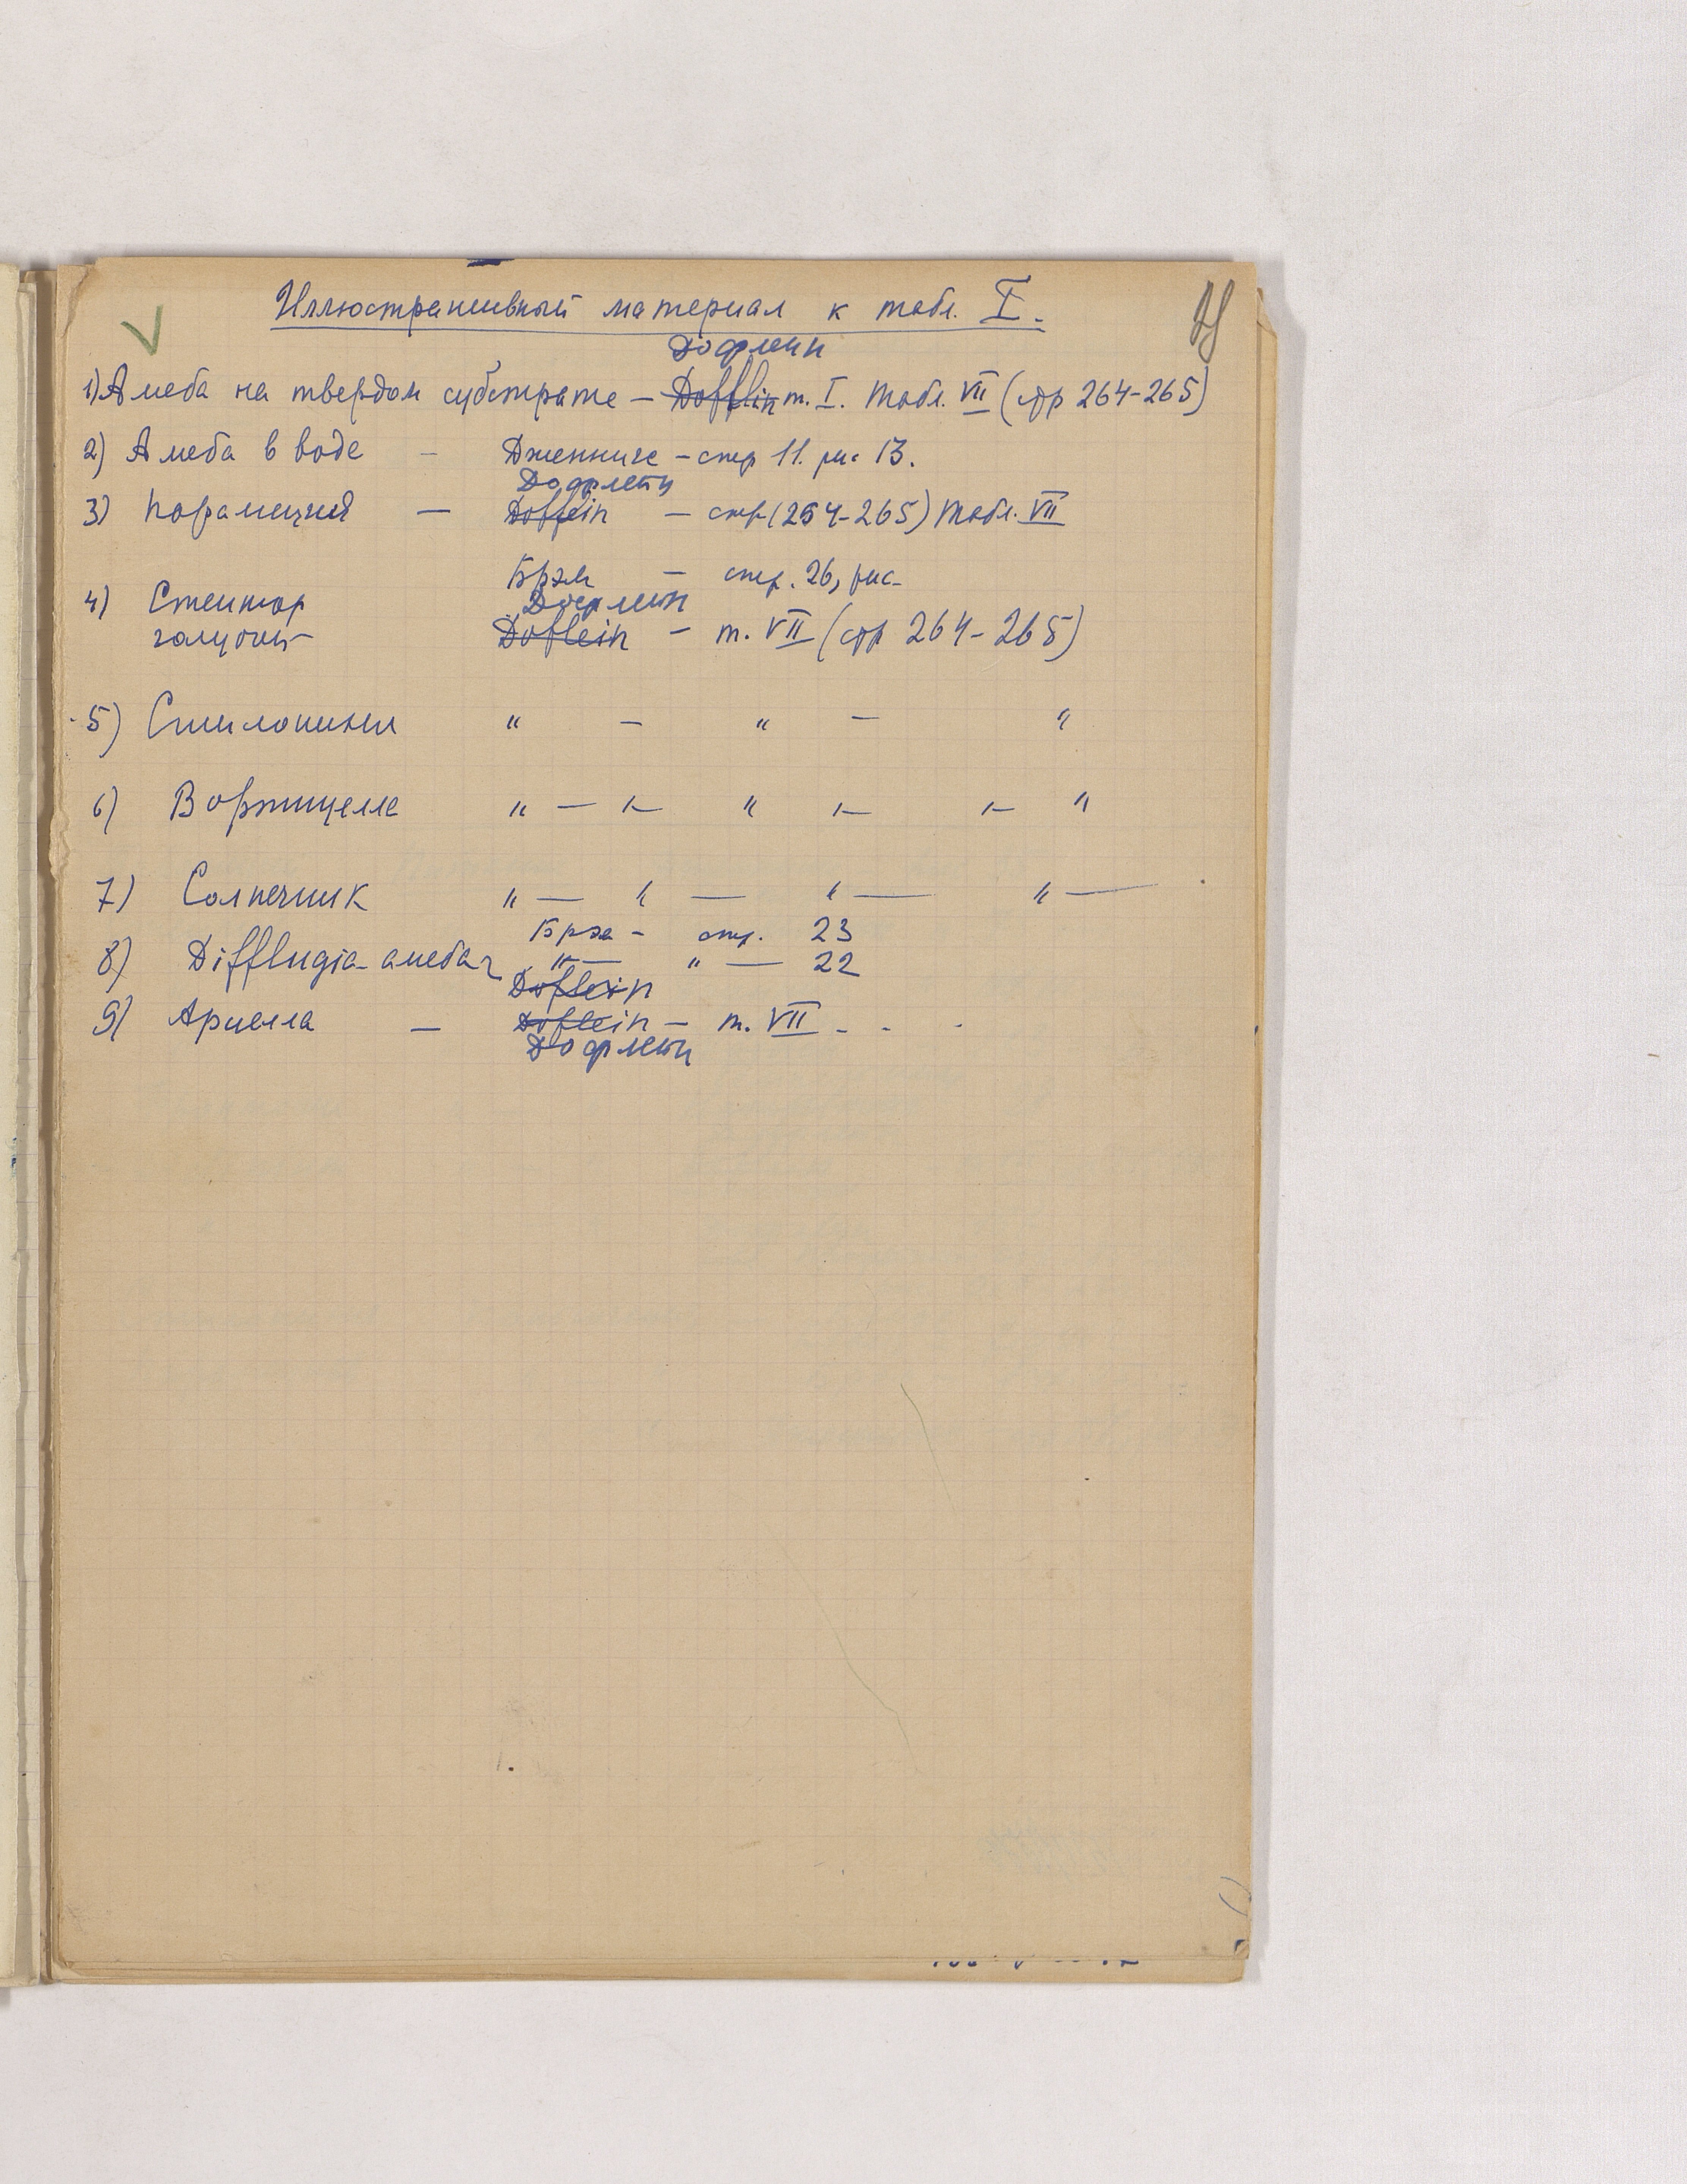 Иллюстративный материал к табл. I.
Дофлейн
1) Амеба на твердом субстрате — Dofflin т. I. Табл. VII (стр 264-265)
2) Амеба в воде — Дженнигс — стр 11. рис 13.
Дофлейн
3) Парамеций — Doffein — стр (264-265) Табл. VII
Брэм — стр. 26, рис.
4) Стентор
Дофлейн
голубой Doflein — т. VII (стр 264-265)
5) Стилонихия " — " — "
6) Вортицелле " — " — " — — "
7) Солнечник " — " — " — " —
Брэм - стр. 23
8) Difflugia-амеба " — " — 22
Doflein
9) Арцелла — Doflein — т. VII - - -
Дофлейн